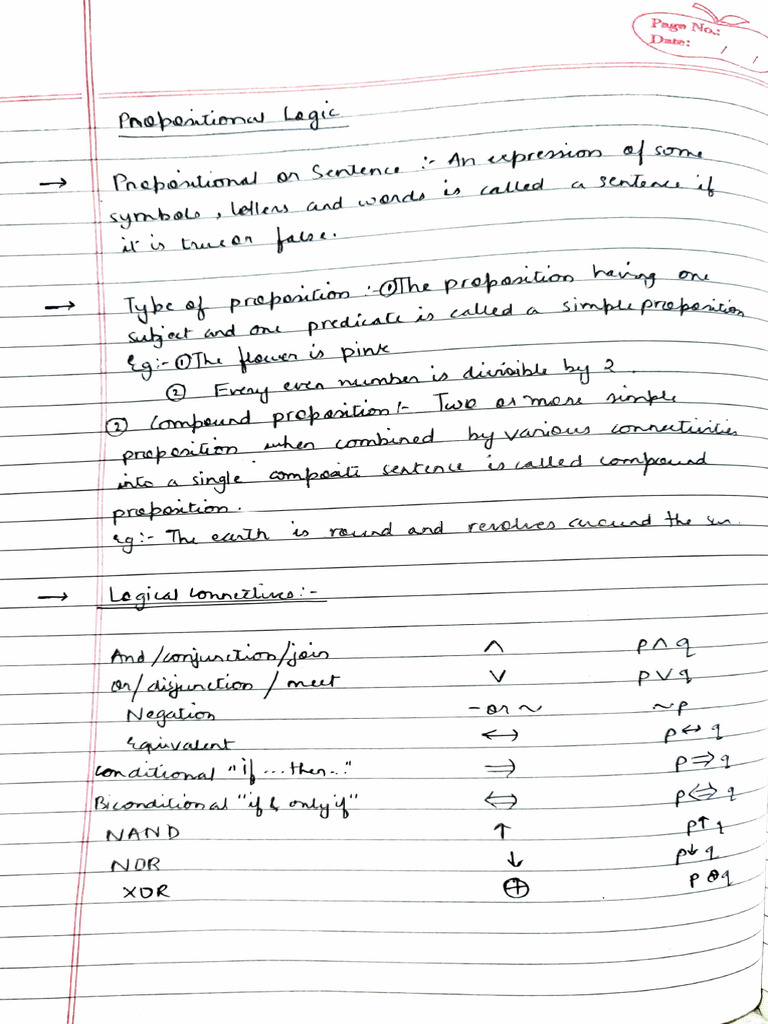 Page No.:
Date: / /
Propositional Logic
→ Propositional or Sentence :- An expression of some
symbols, letters and words is called a sentence if
it is true or false.
→ Type of proposition :- ① The proposition having one
subject and one predicate is called a simple proposition
Eg:- ① The flower is pink
② Every even number is divisible by 2.
② Compound proposition :- Two or more simple
proposition when combined by various connectivities
into a single composite sentence is called compound
proposition.
eg:- The earth is round and revolves around the sun.
→ Logical Connectives :-
And /conjunction/join ∧ p ∧ q
or/ disjunction / meet ∨ p ∨ q
Negation - or ~ ~p
Equivalent ↔ p ↔ q
conditional "if...then.." ⇒ p ⇒ q
Biconditional "if & only if" ⇔ p ⇔ q
NAND ↑ p ↑ q
NOR ↓ p ↓ q
XOR ⊕ p ⊕ q